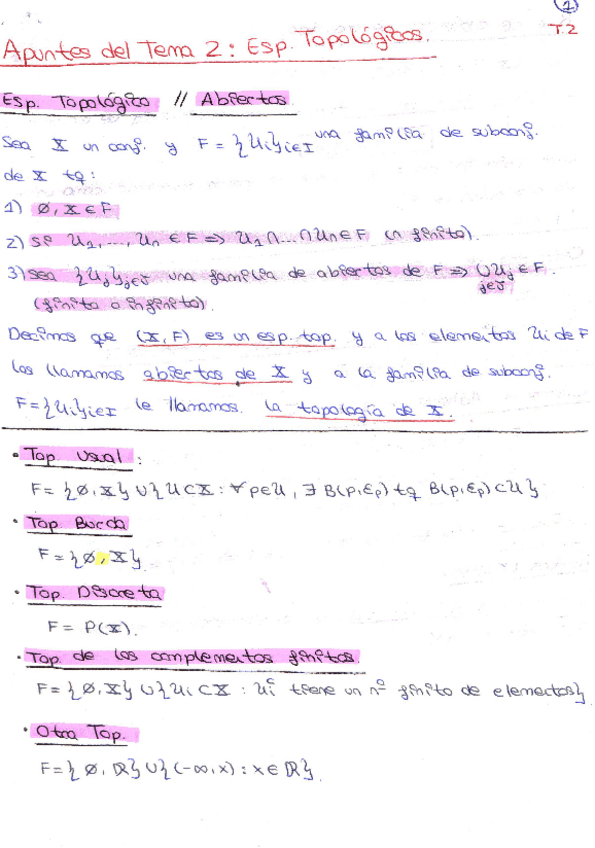 1
T.2
Apuntes del Tema 2: Esp. Topológicos.
Esp. Topológico // Abiertos
Sea X un conj. y F = {Ui}i∈I una familia de subconj.
de X tq:
1) ∅, X ∈ F
2) Si U1, ..., Un ∈ F ⇒ U1 ∩ ... ∩ Un ∈ F (n finito).
3) Sea {Uj}j∈J una familia de abiertos de F ⇒ ∪ Uj ∈ F.
j∈J
(finita o infinita).
Decimos que (X, F) es un esp. top. y a los elementos Ui de F
los llamamos abiertos de X y a la familia de subconj.
F = {Ui}i∈I le llamamos la topología de X.
• Top. Usual:
F = {∅, X} ∪ {U ⊂ X : ∀p∈U, ∃ B(p, εp) tq B(p, εp) ⊂ U}
• Top. Burda
F = {∅, X}
• Top. Discreta
F = P(X).
• Top. de los complementos finitos.
F = {∅, X} ∪ {Ui ⊂ X : Ui^c tiene un nº finito de elementos}
• Otra Top.
F = {∅, ℝ} ∪ {(-∞, x) : x ∈ ℝ}.